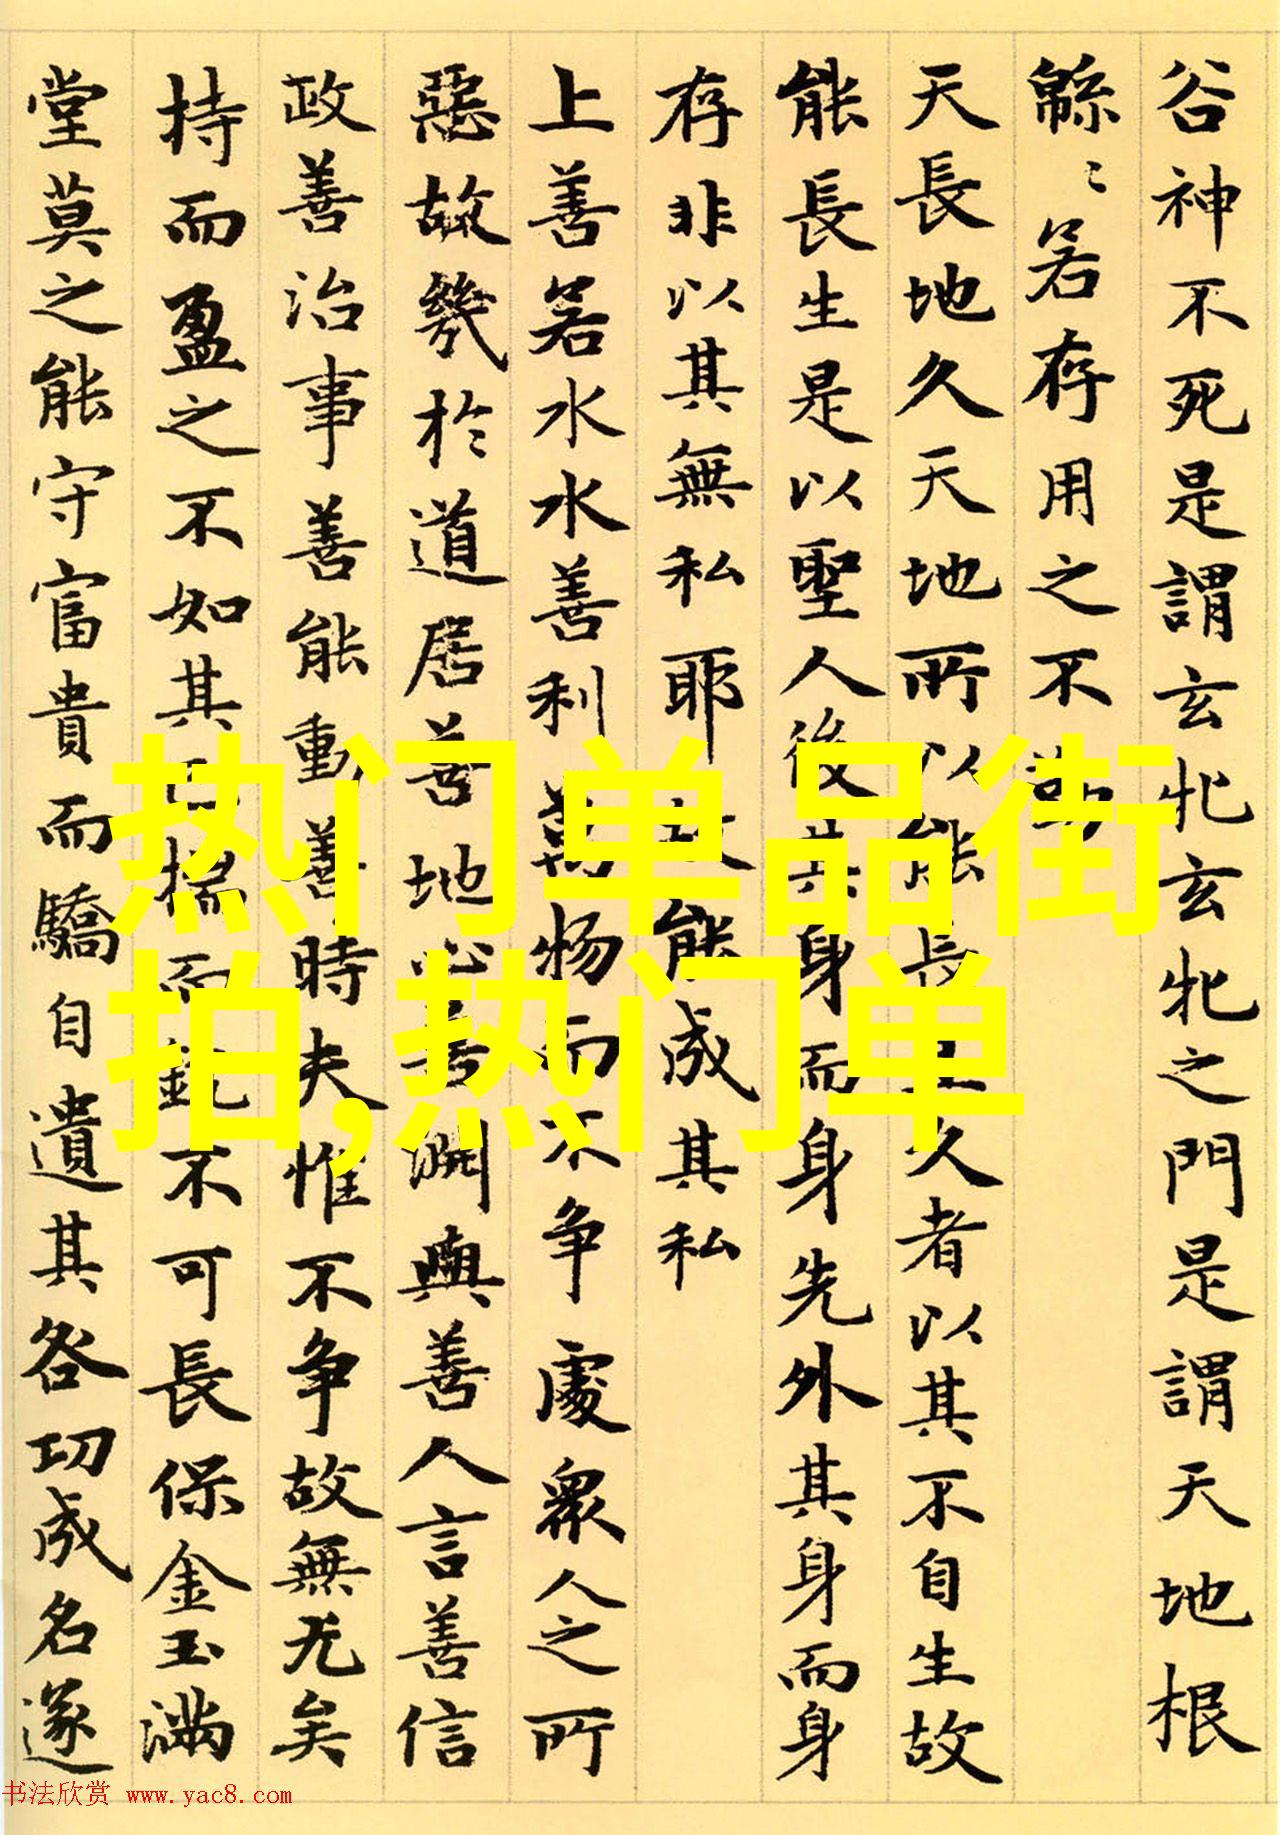 谷神不死是謂玄牝玄牝之門是謂天地根
緜〻若存用之不勤
天長地久天地所以能長且久者以其不自生故
能長生是以聖人後其身而身先外其身而身
存非以其無私耶故能成其私
上善若水水善利萬物而不争處衆人之所
惡故幾於道居善地心善淵與善人言善信
政善治事善能動善時夫惟不争故無尤矣
持而盈之不如其已揣而銳不可長保金玉滿
堂莫之能守富貴而驕自遺其咎功成名遂
热门单品街
拍,热门单
书法欣赏 www.yac8.com